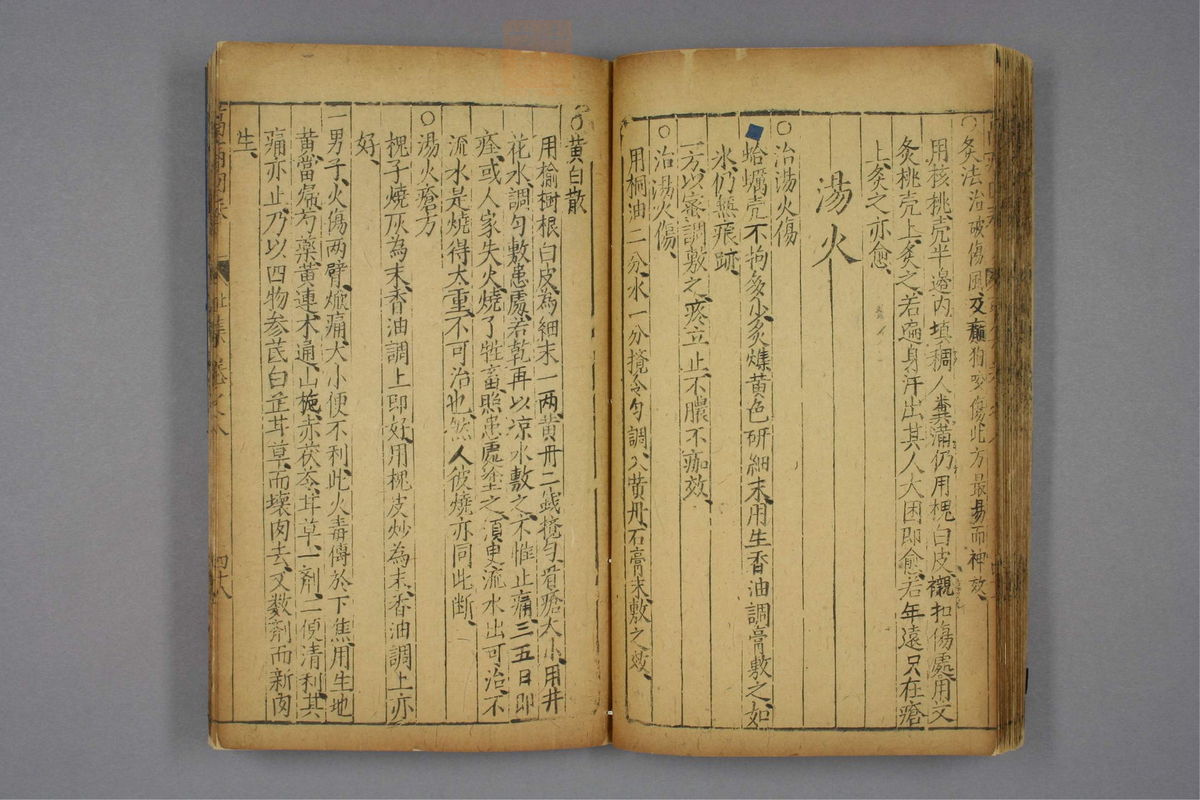 ○灸法治破傷風及癲狗咬傷此方最易而神效
用核桃壳半邊内填稠人糞滿仍用槐白皮襯扣傷處用艾
灸桃壳上灸之若遍身汗出其人大困即愈若年遠只在瘡
上灸之亦愈
湯火
○治湯火傷
蛤蠣壳不拘多少炙燥黄色研細末用生香油調膏敷之如
氷仍無痕跡
一方以蜜調敷之疼立止不膿不痂效
○治湯火傷
用桐油二分水一分攪令匀調入黄丹石膏末敷之效
○黄白散
用榆樹根白皮為細末一两黄丹二錢攪匀看瘡大小用井
花水調匀敷患處若乾再以凉水敷之不惟止痛三五日即
痊或人家失火燒了牲畜照患處塗之須更流水出可治不
流水是燒得太重不可治也然人彼燒亦同此断
○湯火瘡方
槐子燒灰為末香油調上即好用槐皮炒為末香油調上亦
好
一男子火傷两臂燉痛大小便不利此火毒傳於下焦用生地
黄當㷄芍藥黄連木通山梔赤茯苓甘草一劑二便清利其
痛亦止乃以四物参芪白芷甘草而壊肉去又数劑而新肉
生
四十八